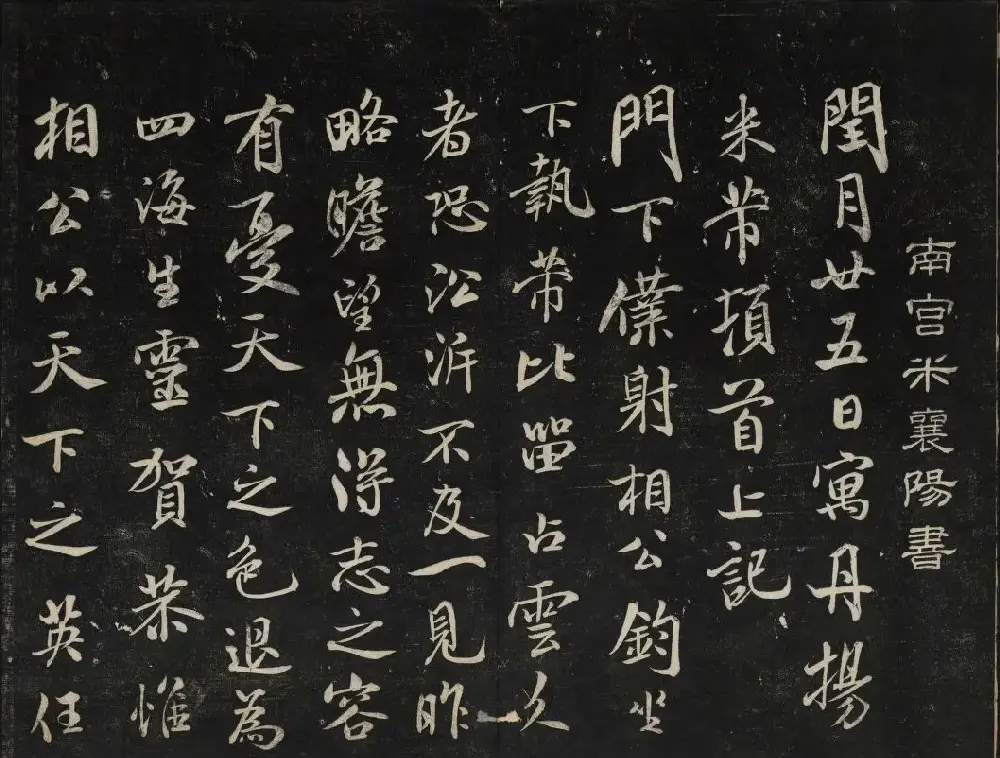 南宫米襄陽書
閏月廿五日寓丹揚
米芾頓首上記
門下僕射相公鈞坐
下執芾比留占雲久
者恐沿泝不及一見昨
略瞻望無得志之容
有憂天下之色退為
四海生靈賀恭惟
相公以天下之英任